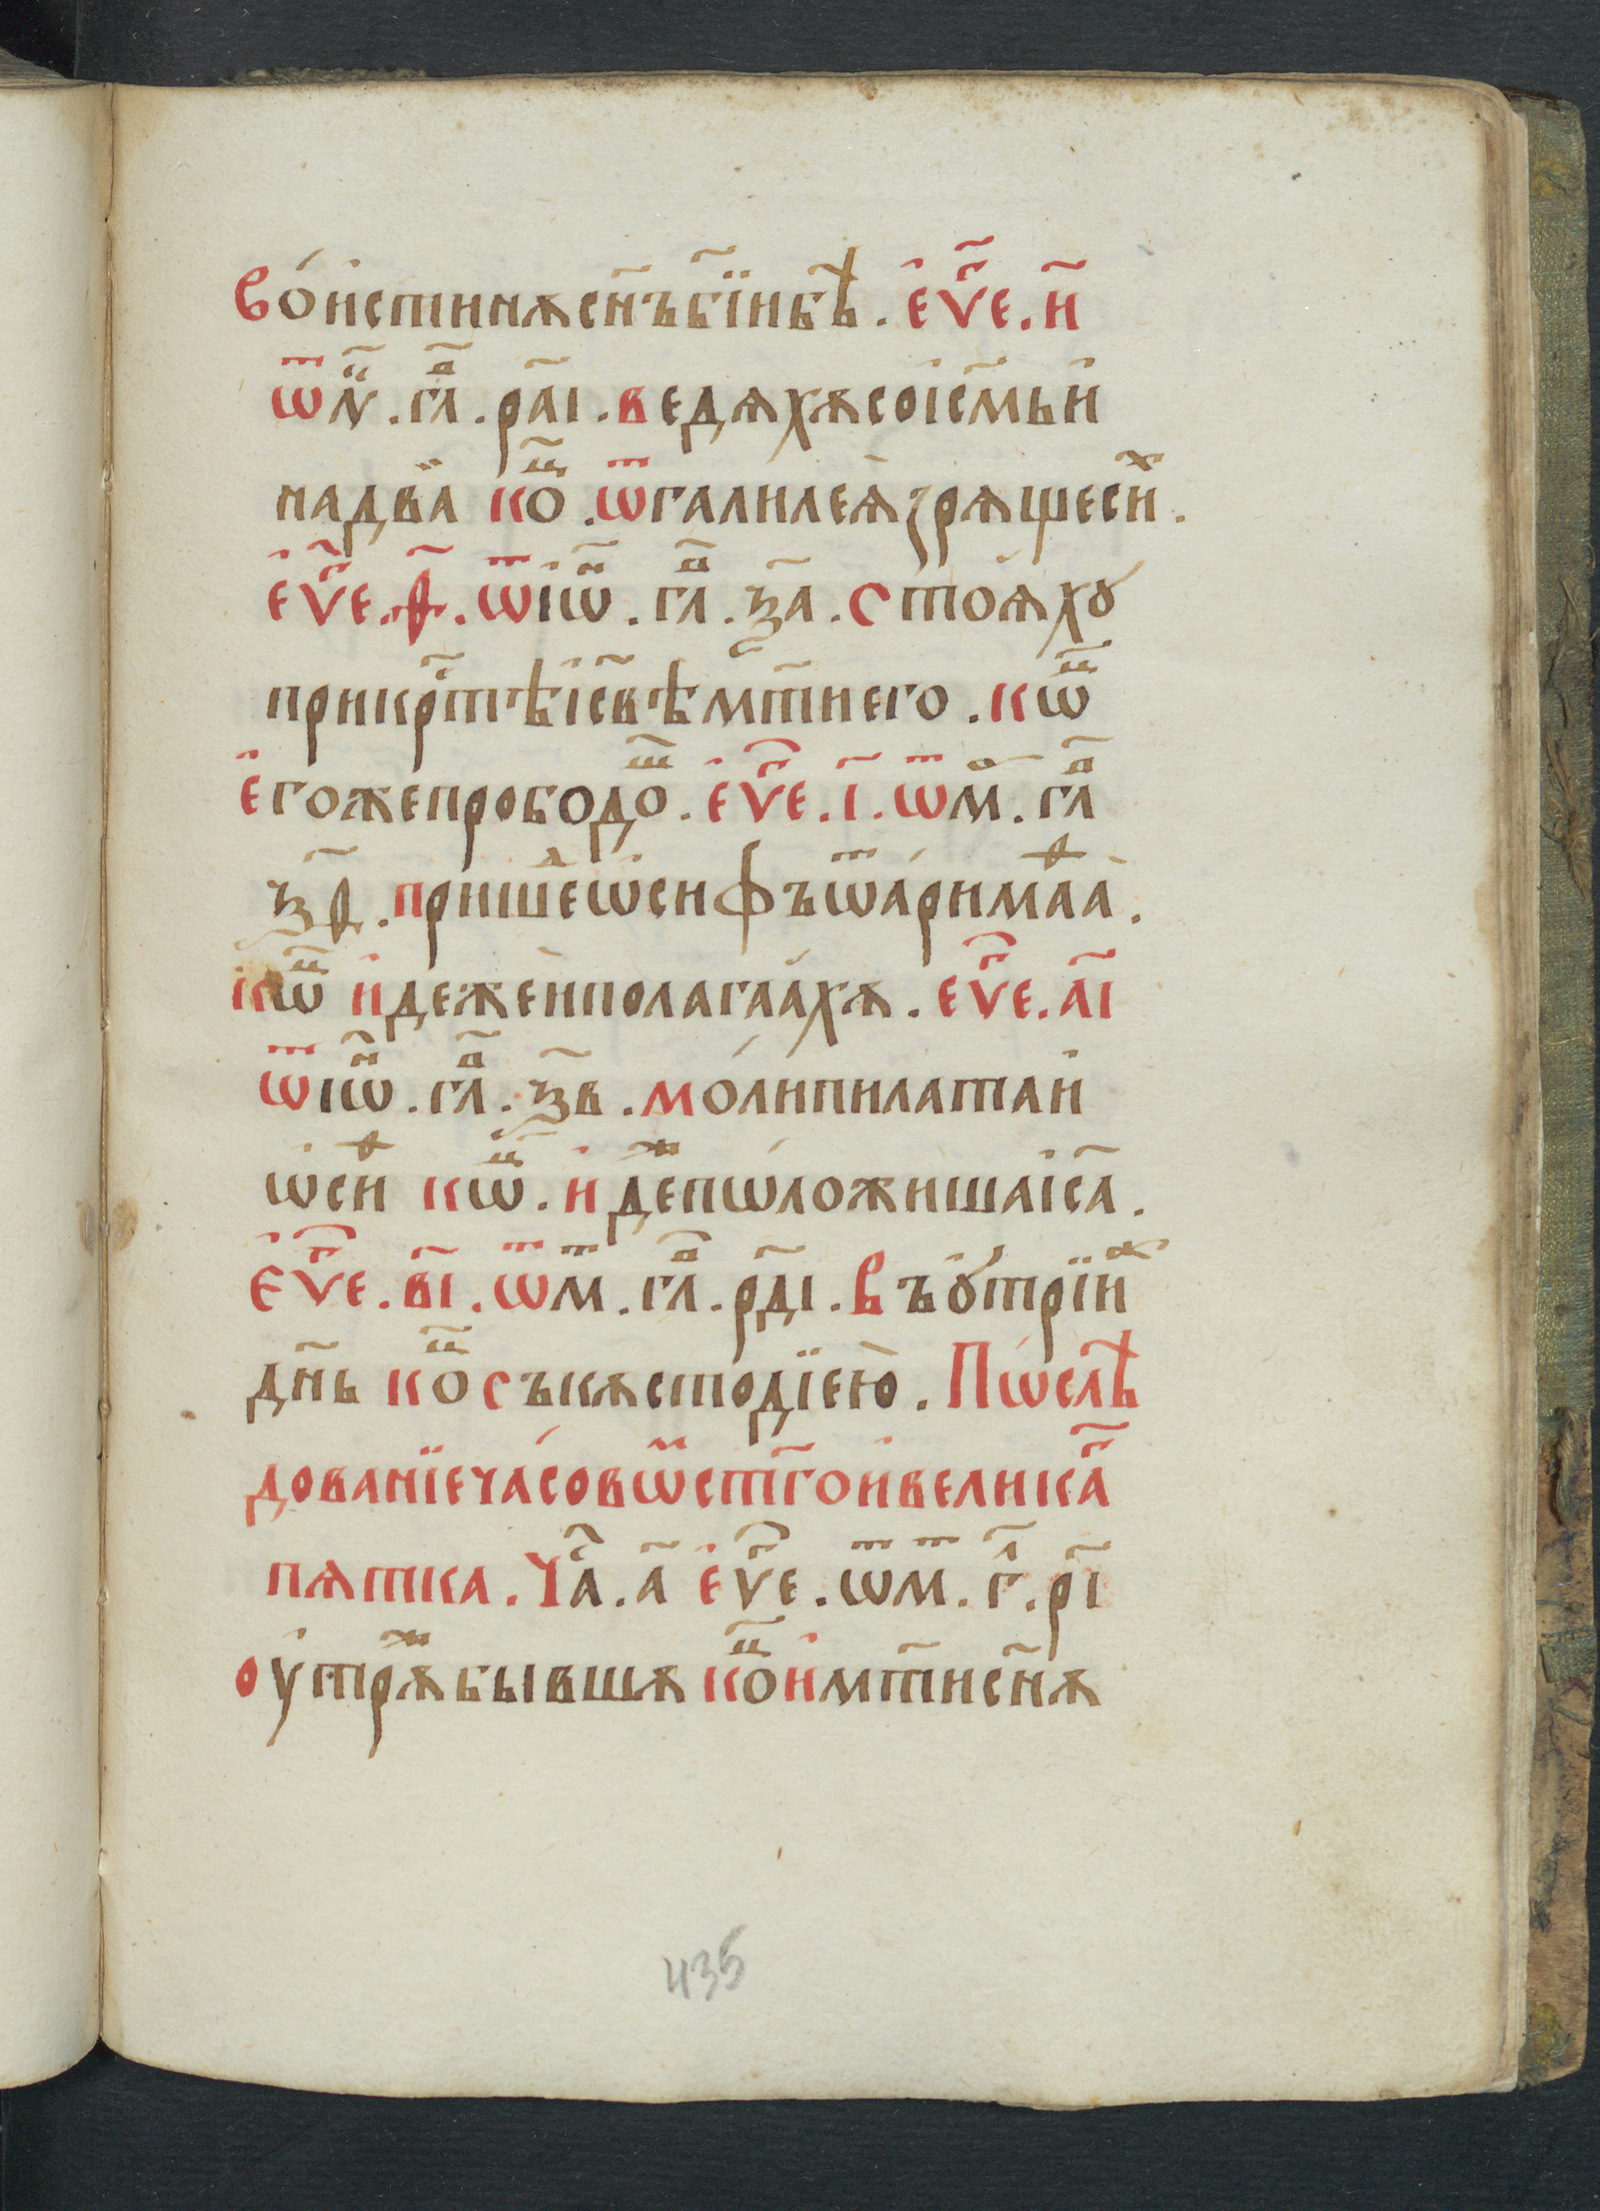 Во́и҆стинѫсн҃ъбж҃їибѣ̀. Е҆ѵⷢ҇е. и҃
ѿлⷦ҇. глⷡ҇. ра҃і. ведѧхѫсоі҆с҃мьи҆
надва̏ коⷰ҇. ѿгалилеѧ̀зрѧщесиⷯ.
Е҆ѵⷢ҇е. ѳ҃. ѿі҆ѡⷩ҇. глⷡ҇. ѯ҃а. стоѧ҆хꙋ
прикрⷭ҇тѣі҆с҃вѣмт҃иего. кѡⷰ҇
Е҆гожепрободоⷲ. Е҆ѵⷢ҇е. і҃. ѿмⷬ҇. глⷡ҇
ѯ҃ѳ. пришеⷣѡ҆сифъѿа́римаѳⷤа̀.
кѡⷰ҇ и҆дежеѝполагаа҆хѫ. Еѵⷢ҇е. а҃і
ѿі҆ѡⷩ҇. глⷡ҇. ѯ҃в. мо́липилатаи҆
ѡ҆сиⷴ кѡⷰ҇. и҆деⷤпѡложишаі҆с҃а.
Е҆ѵⷢ҇е. в҃і. ѿмⷮ. глⷡ҇. рд҃і. въꙋ҆трїиⷤ
дн҃ь коⷰ҇ съкѫстодїею̀. Пѡ́слѣ
дованїечасо́вѡⷨст҃гои҆великаⷢ҇
пѧтка. Чаⷭ҇. а҃ Е҆ѵⷢ҇е. ѿмⷮ. гⷧ҇. р҃і
оу҆трѫⷤбывшѫ коⷰ҇ и҆мт҃исн҃ѫ
435